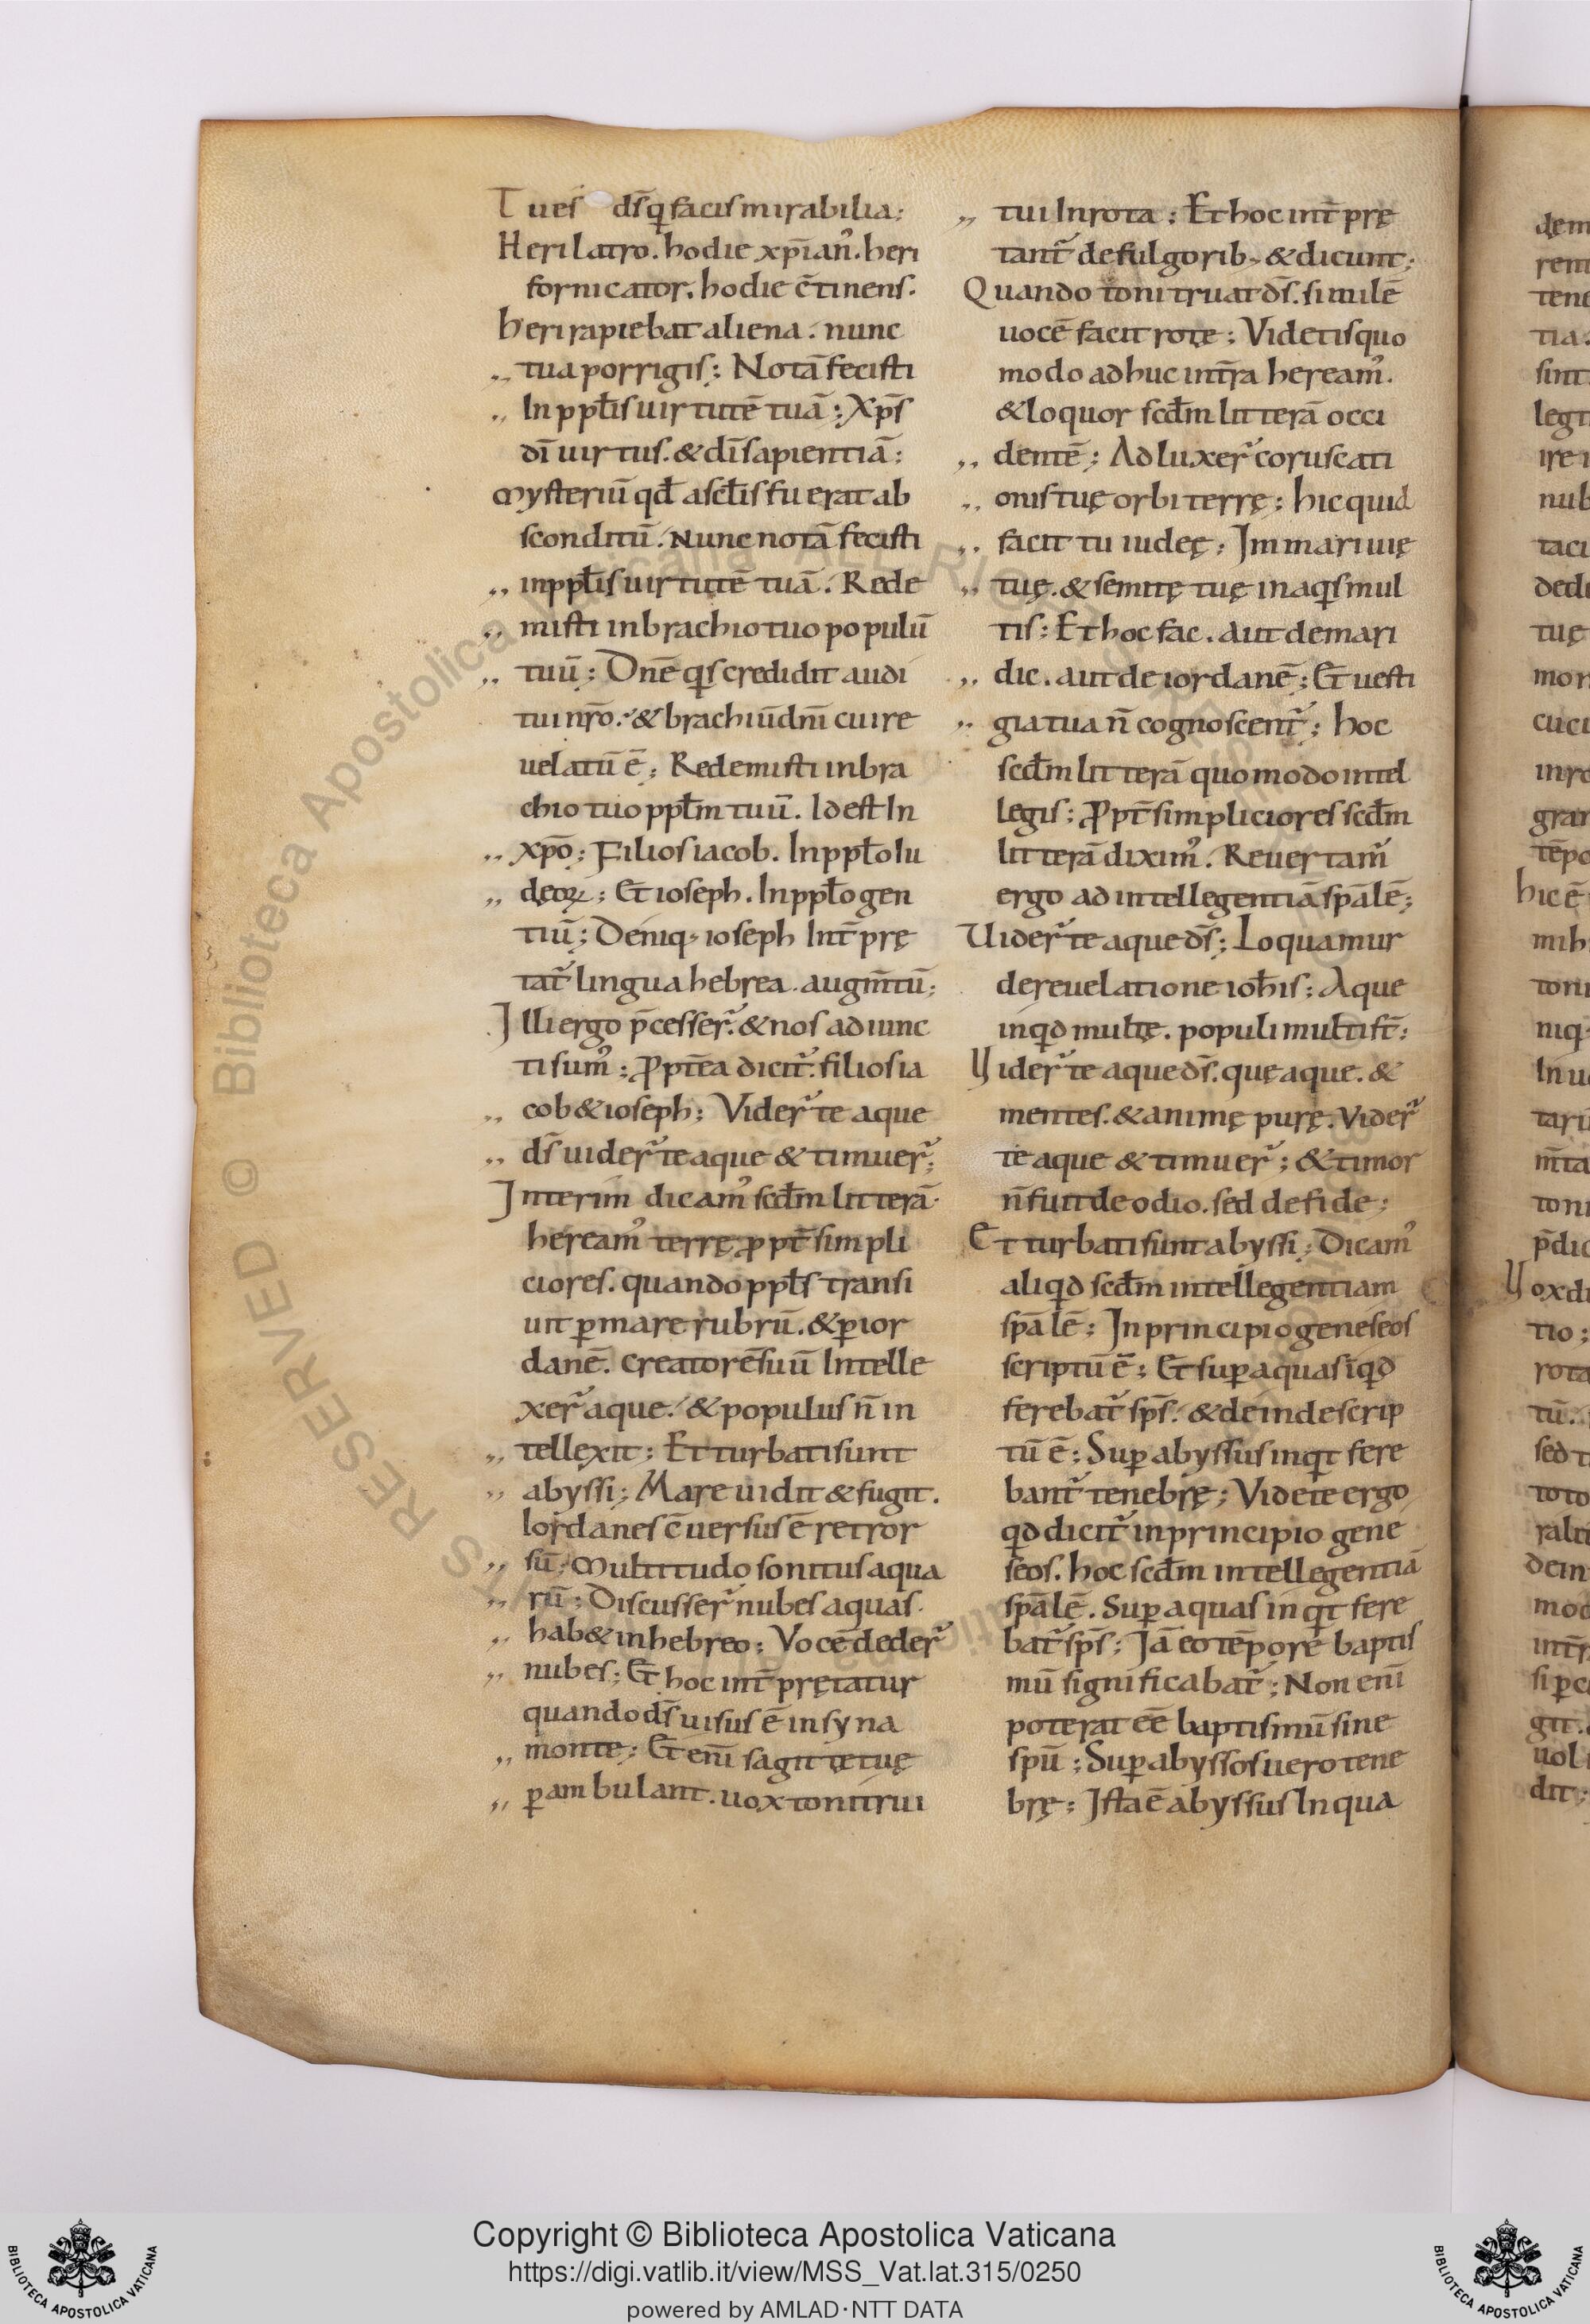 Tu es ds̄ q̄ facis mirabilia;
Heri latro. hodie xp̄ian᾽. heri
fornicator. hodie c̄tinens.
heri rapiebat aliena. nunc
,, tua porrigis; Notā fecisti
,, In ppłis uirtutē tuā; Xp̄s
dī uirtus. & dī sapientiā;
Mysteriū qđ a scłis fuerat ab
sconditū. Nunc notā fecisti
,, in ppłis uirtutē tuā. Rede
,, misti in brachio tuo populū
,, tuū; Dn̄e q̄s credidit audi
tui nr̄o. & brachiū dn̄i cui re
uelatū ē; Redemisti in bra
chio tuo ppłm tuū. Id est In
,, xp̄o; Filios iacob. In ppło Iu
,, dęoꝝ; Et ioseph. In ppło gen
tiū; Deniq; ioseph Int̄prę
tat᾽ lingua hebrea. augm̄tū;
Illi ergo p̄cesser᾽. & nos adiunc
ti sum᾽; ꝓpt̄ea dicit᾽. filios ia
,, cob & ioseph; Vider᾽ te aque
,, ds̄ uider᾽ te aque & timuer᾽;
Interim dicam᾽ scđm litterā.
heream᾽ terrę ꝓpt̄ simpli
ciores. quando ppłs transi
uit ꝑ mare rubrū. & ꝑ ior
danē. creatorē suū Intelle
xer᾽ aque. & populus n̄ in
,, tellexit; Et turbati sunt
,, abyssi; Mare uidit & fugit.
Iordanes c̄uersus ē retror
,, sū; Multitudo sonitus aqua
,, rū; Discusser᾽ nubes aquas.
,, hab& in hebreo; Vocē deder᾽
,, nubes; Et hoc int̄prętatur
quando ds̄ uisus ē in syna
,, monte; Et enī sagittę tuę
,, ꝑambulant. uox tonitrui
,, tui In rota; Et hoc int̄prę
tant᾽ de fulgorib; & dicunt;
Quando tonitruat ds̄. similē
uocē facit rotę; Videtis quo
modo adhuc int̄ra heream᾽.
& loquor scđm litterā occi
,, dentē; Adluxer᾽ coruscati
,, onis tuę orbi terrę; hic quid
,, facit tu iudeę; Im mari uię
,, tuę. & semitę tuę in aq̄s mul
tis; Et hoc fac. aut de mari
,, dic. aut de iordanē; Et uesti
,, gia tua n̄ cognoscent᾽; hoc
scđm litterā quomodo intel
legis; ꝓpt̄ simpliciores scđm
litterā dixim᾽. Reuertam᾽
ergo ad intellegentiā spālē;
Uider᾽ te aque ds̄; Loquamur
de reuelatione ioħis; Aque
inq̄d multę. populi multi st̄;
Uider᾽ te aque ds̄. quę aque. &
mentes. & animę purę. Vider᾽
te aque & timuer᾽; & timor
n̄ fuit de odio. sed de fide;
Et turbati sunt abyssi; Dicam᾽
aliq̄d scđm intellegentiam
spālē; In principio geneseos
scriptū ē; Et suꝑ aquas īq̄d
ferebat᾽ sp̄s. & deinde scrip
tū ē; Suꝑ abyssus inq̄t fere
bant᾽ tenebrę; Videte ergo
q̄d dicit᾽ in principio gene
seos. hoc scđm intellegentiā
spālē. Suꝑ aquas inq̄t fere
bat᾽ sp̄s; Iā eo tēpore baptis
mū significabat᾽; Non enī
poterat eē baptismū sine
spū; Suꝑ abyssos uero tene
brę; Ista ē abyssus In qua
Copyright © Biblioteca Apostolica Vaticana
https://digi.vatlib.it/view/MSS_Vat.lat.315/0250
powered by AMLAD·NTT DATA
BIBLIOTECA APOSTOLICA VATICANA
BIBLIOTECA APOSTOLICA VATICANA